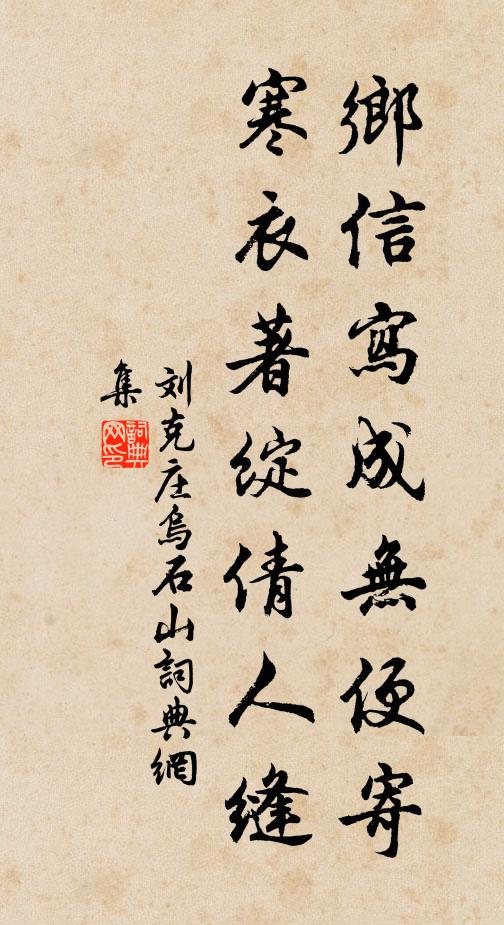 鄉信寫成無便寄
寒衣著綻倩人縫
刘克庄烏石山詞典網
集
詞典
网印